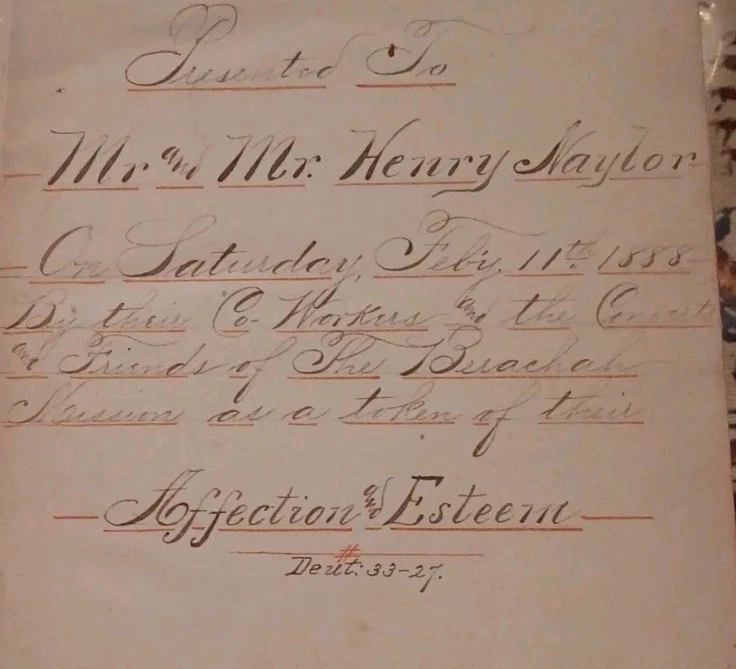 Presented To
Mr and Mr. Henry Naylor
On Saturday, Feb'y, 11th. 1888
By their Co-Workers and the
and Friends of The Berachah
Mission as a token of their
Affection and Esteem
#
Deut: 33-27.